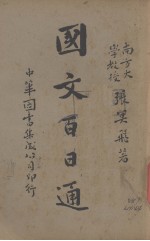 南方大
學教授 張冥飛著
國文百日通
中華圖書集成公司印行